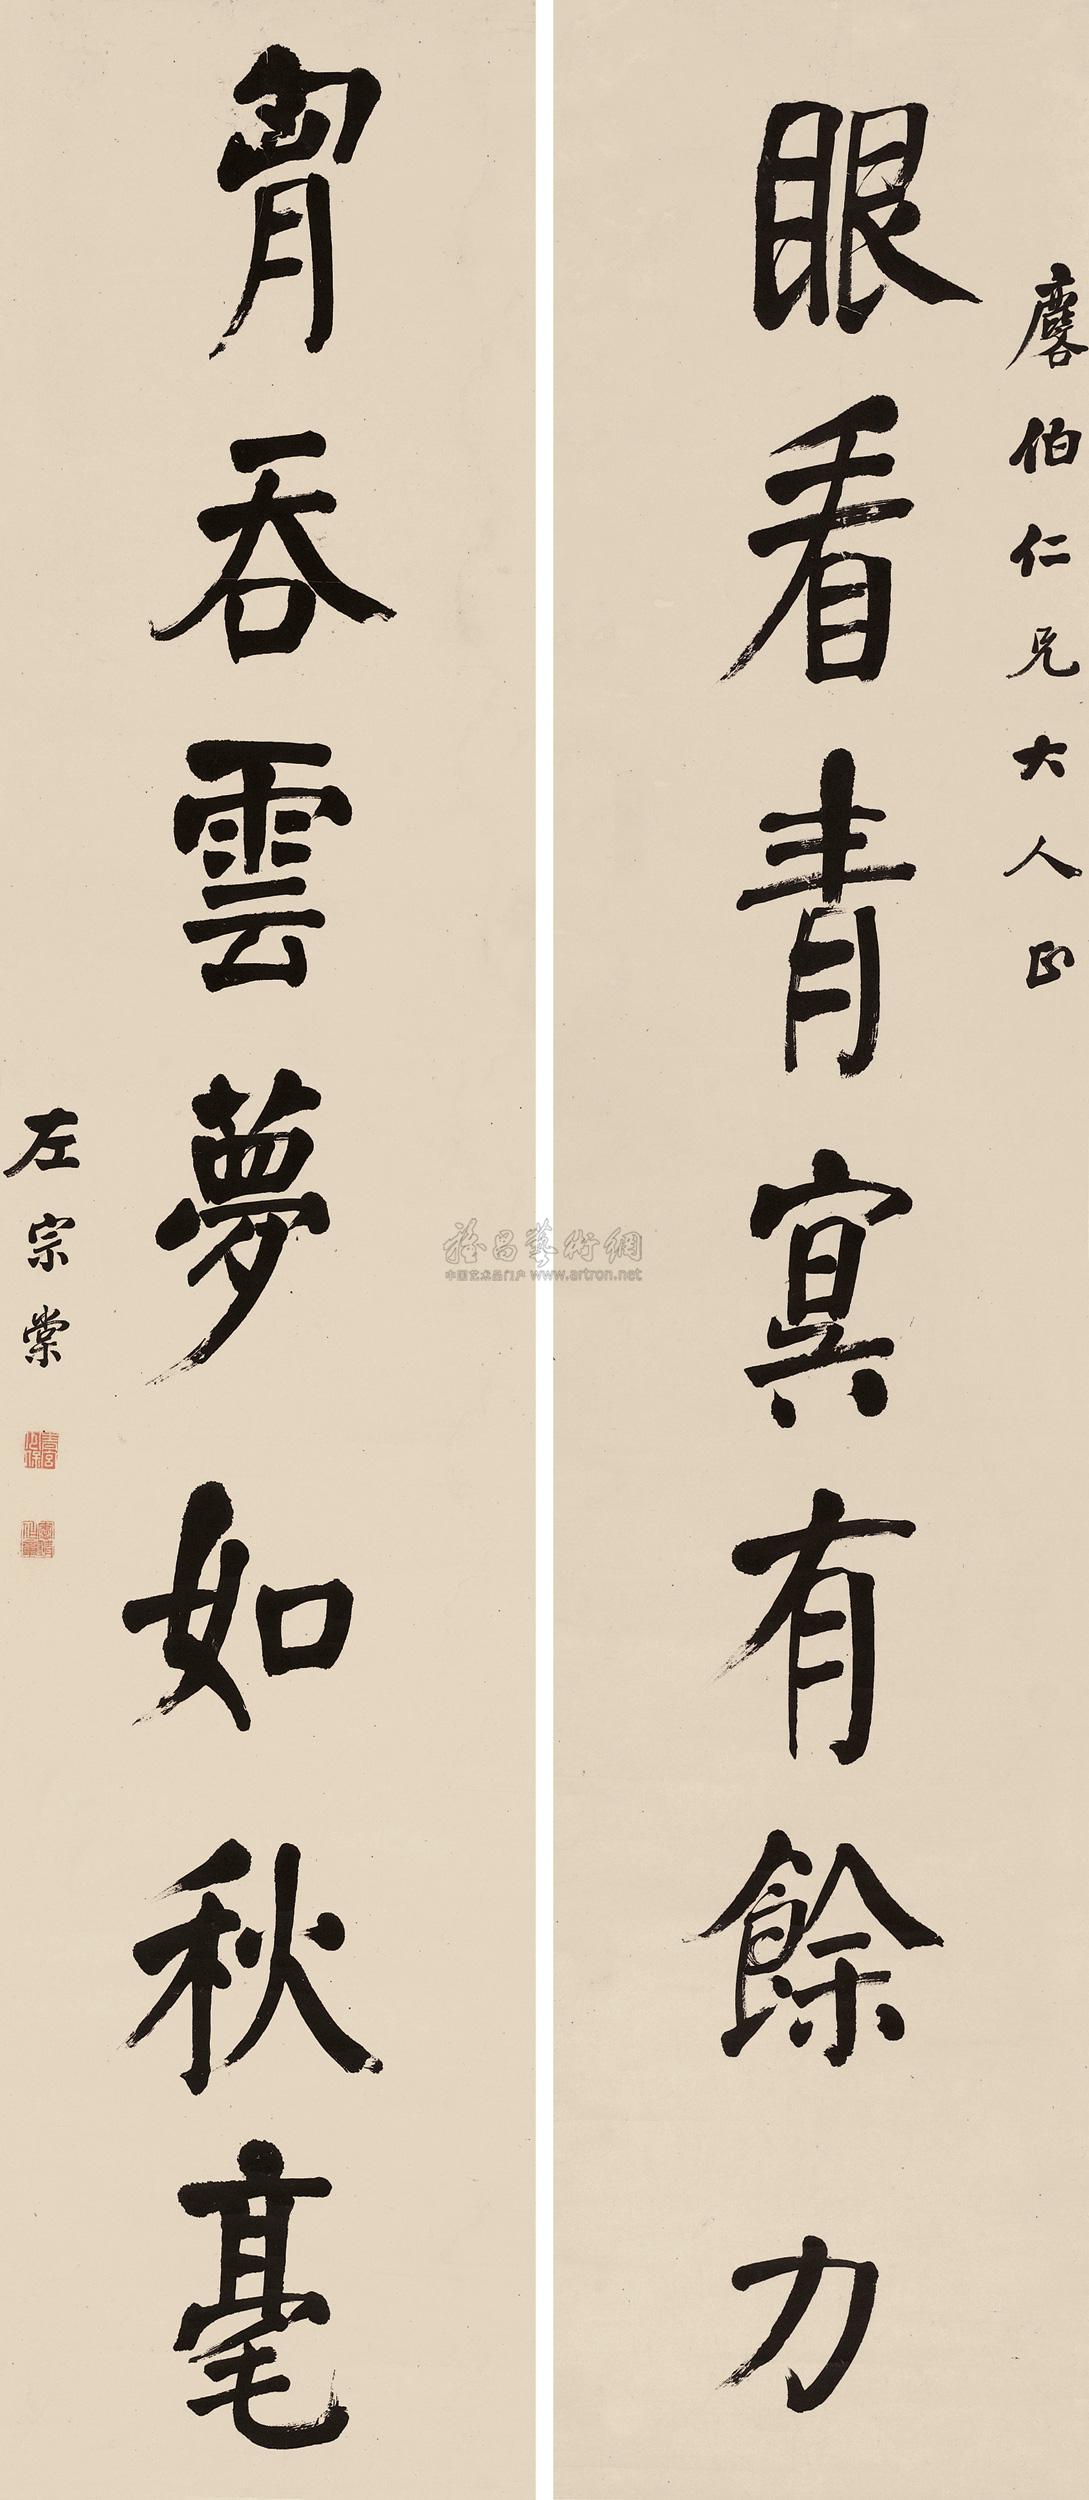 麐伯仁兄大人正
眼看青冥有餘力
胷吞雲夢如秋毫
左宗棠
青宮太保
雅昌藝術網
中国艺术品门户 www.artron.net